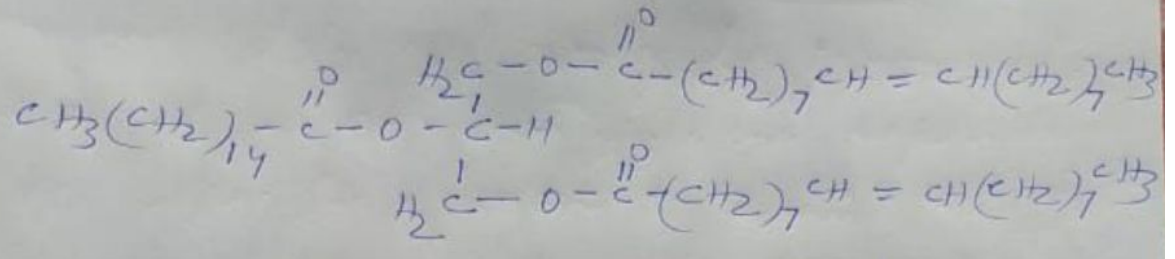 O
||
H2C - O - C - (CH2)7 CH = CH(CH2)7 CH3
O
||
CH3(CH2)14 - C - O - C - H
O
||
H2C - O - C - (CH2)7 CH = CH(CH2)7 CH3